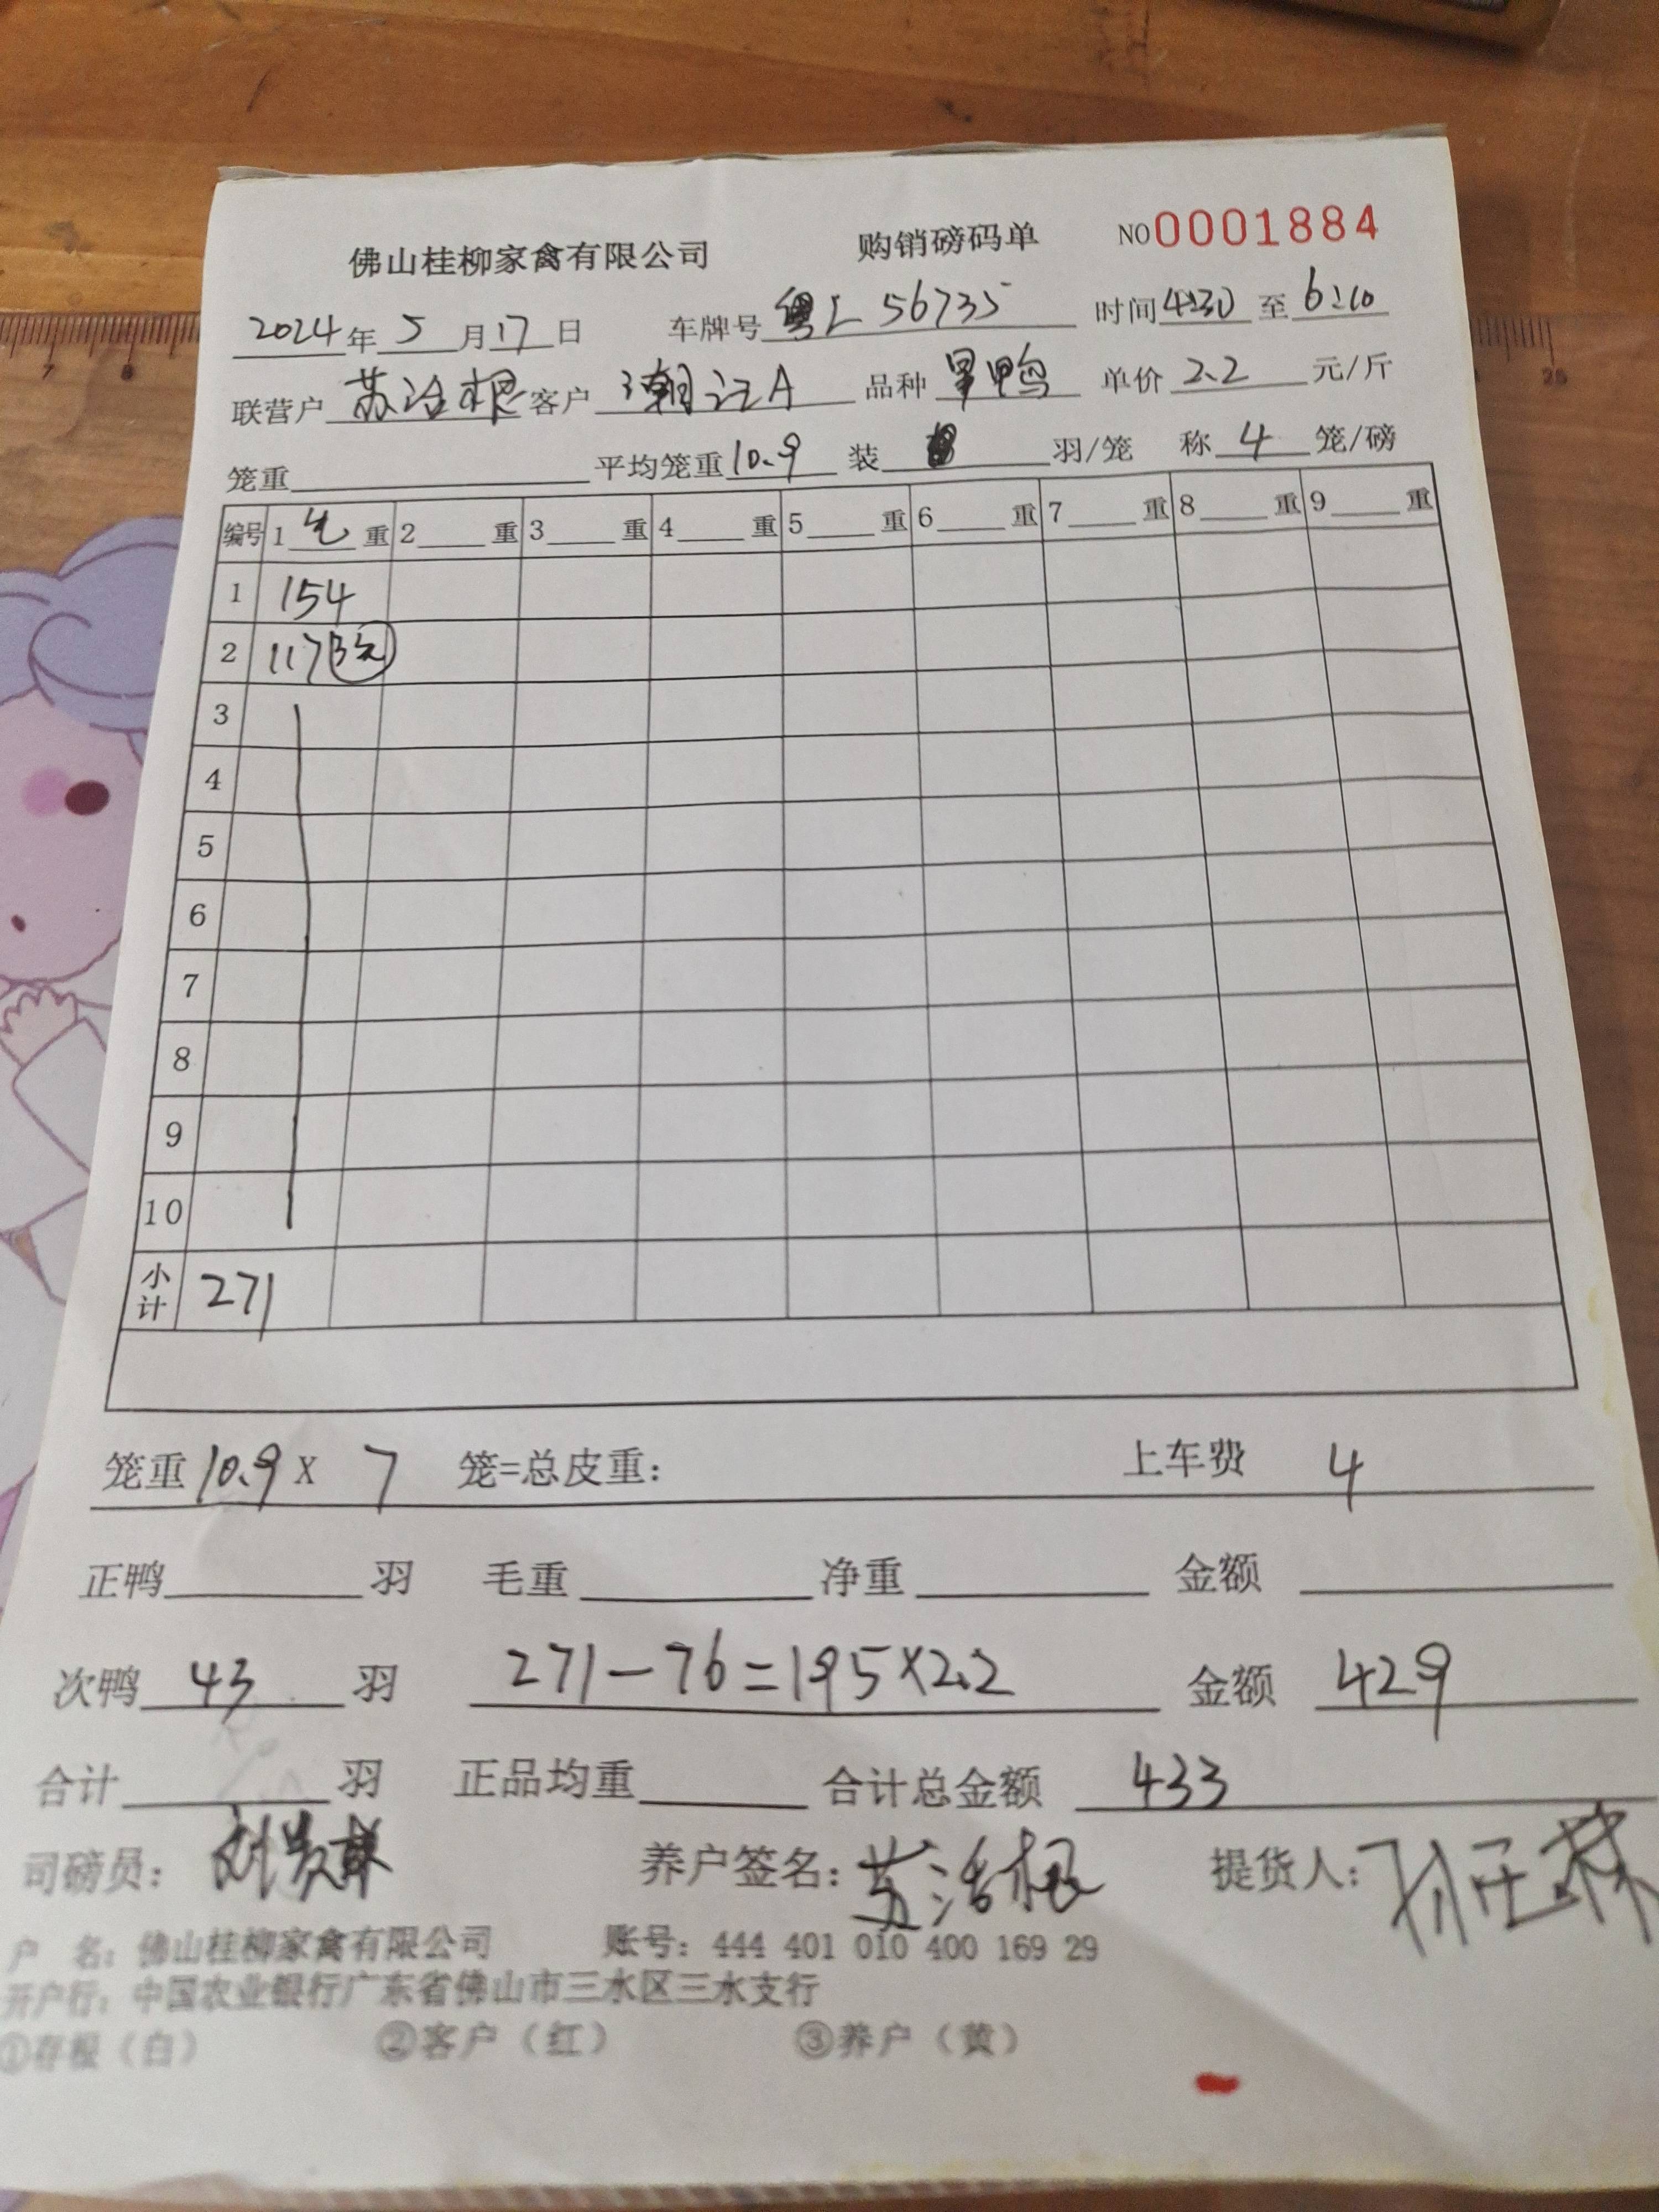 佛山桂柳家禽有限公司 购销磅码单 NO 0001884
2024年 5 月 17 日 车牌号 粤L 56735 时间 4:30 至 6:10
联营户 苏活根 客户 潮记A 品种 单价 2.2 元/斤
笼重 平均笼重 10.9 装 羽/笼 称 4 笼/磅
编号 1 毛 重 2 重 3 重 4 重 5 重 6 重 7 重 8 重 9 重
1 154
2 117
3
4
5
6
7
8
9
10
小计 271
笼重 10.9 X 7 笼=总皮重: 上车费 4
正鸭 羽 毛重 净重 金额
次鸭 43 羽 271-76=195×2.2 金额 429
合计 羽 正品均重 合计总金额 433
司磅员: 养户签名: 苏活根 提货人:
户 名: 佛山桂柳家禽有限公司 账号: 444 401 010 400 169 29
开户行: 中国农业银行广东省佛山市三水区三水支行
①存根（白） ②客户（红） ③养户（黄）